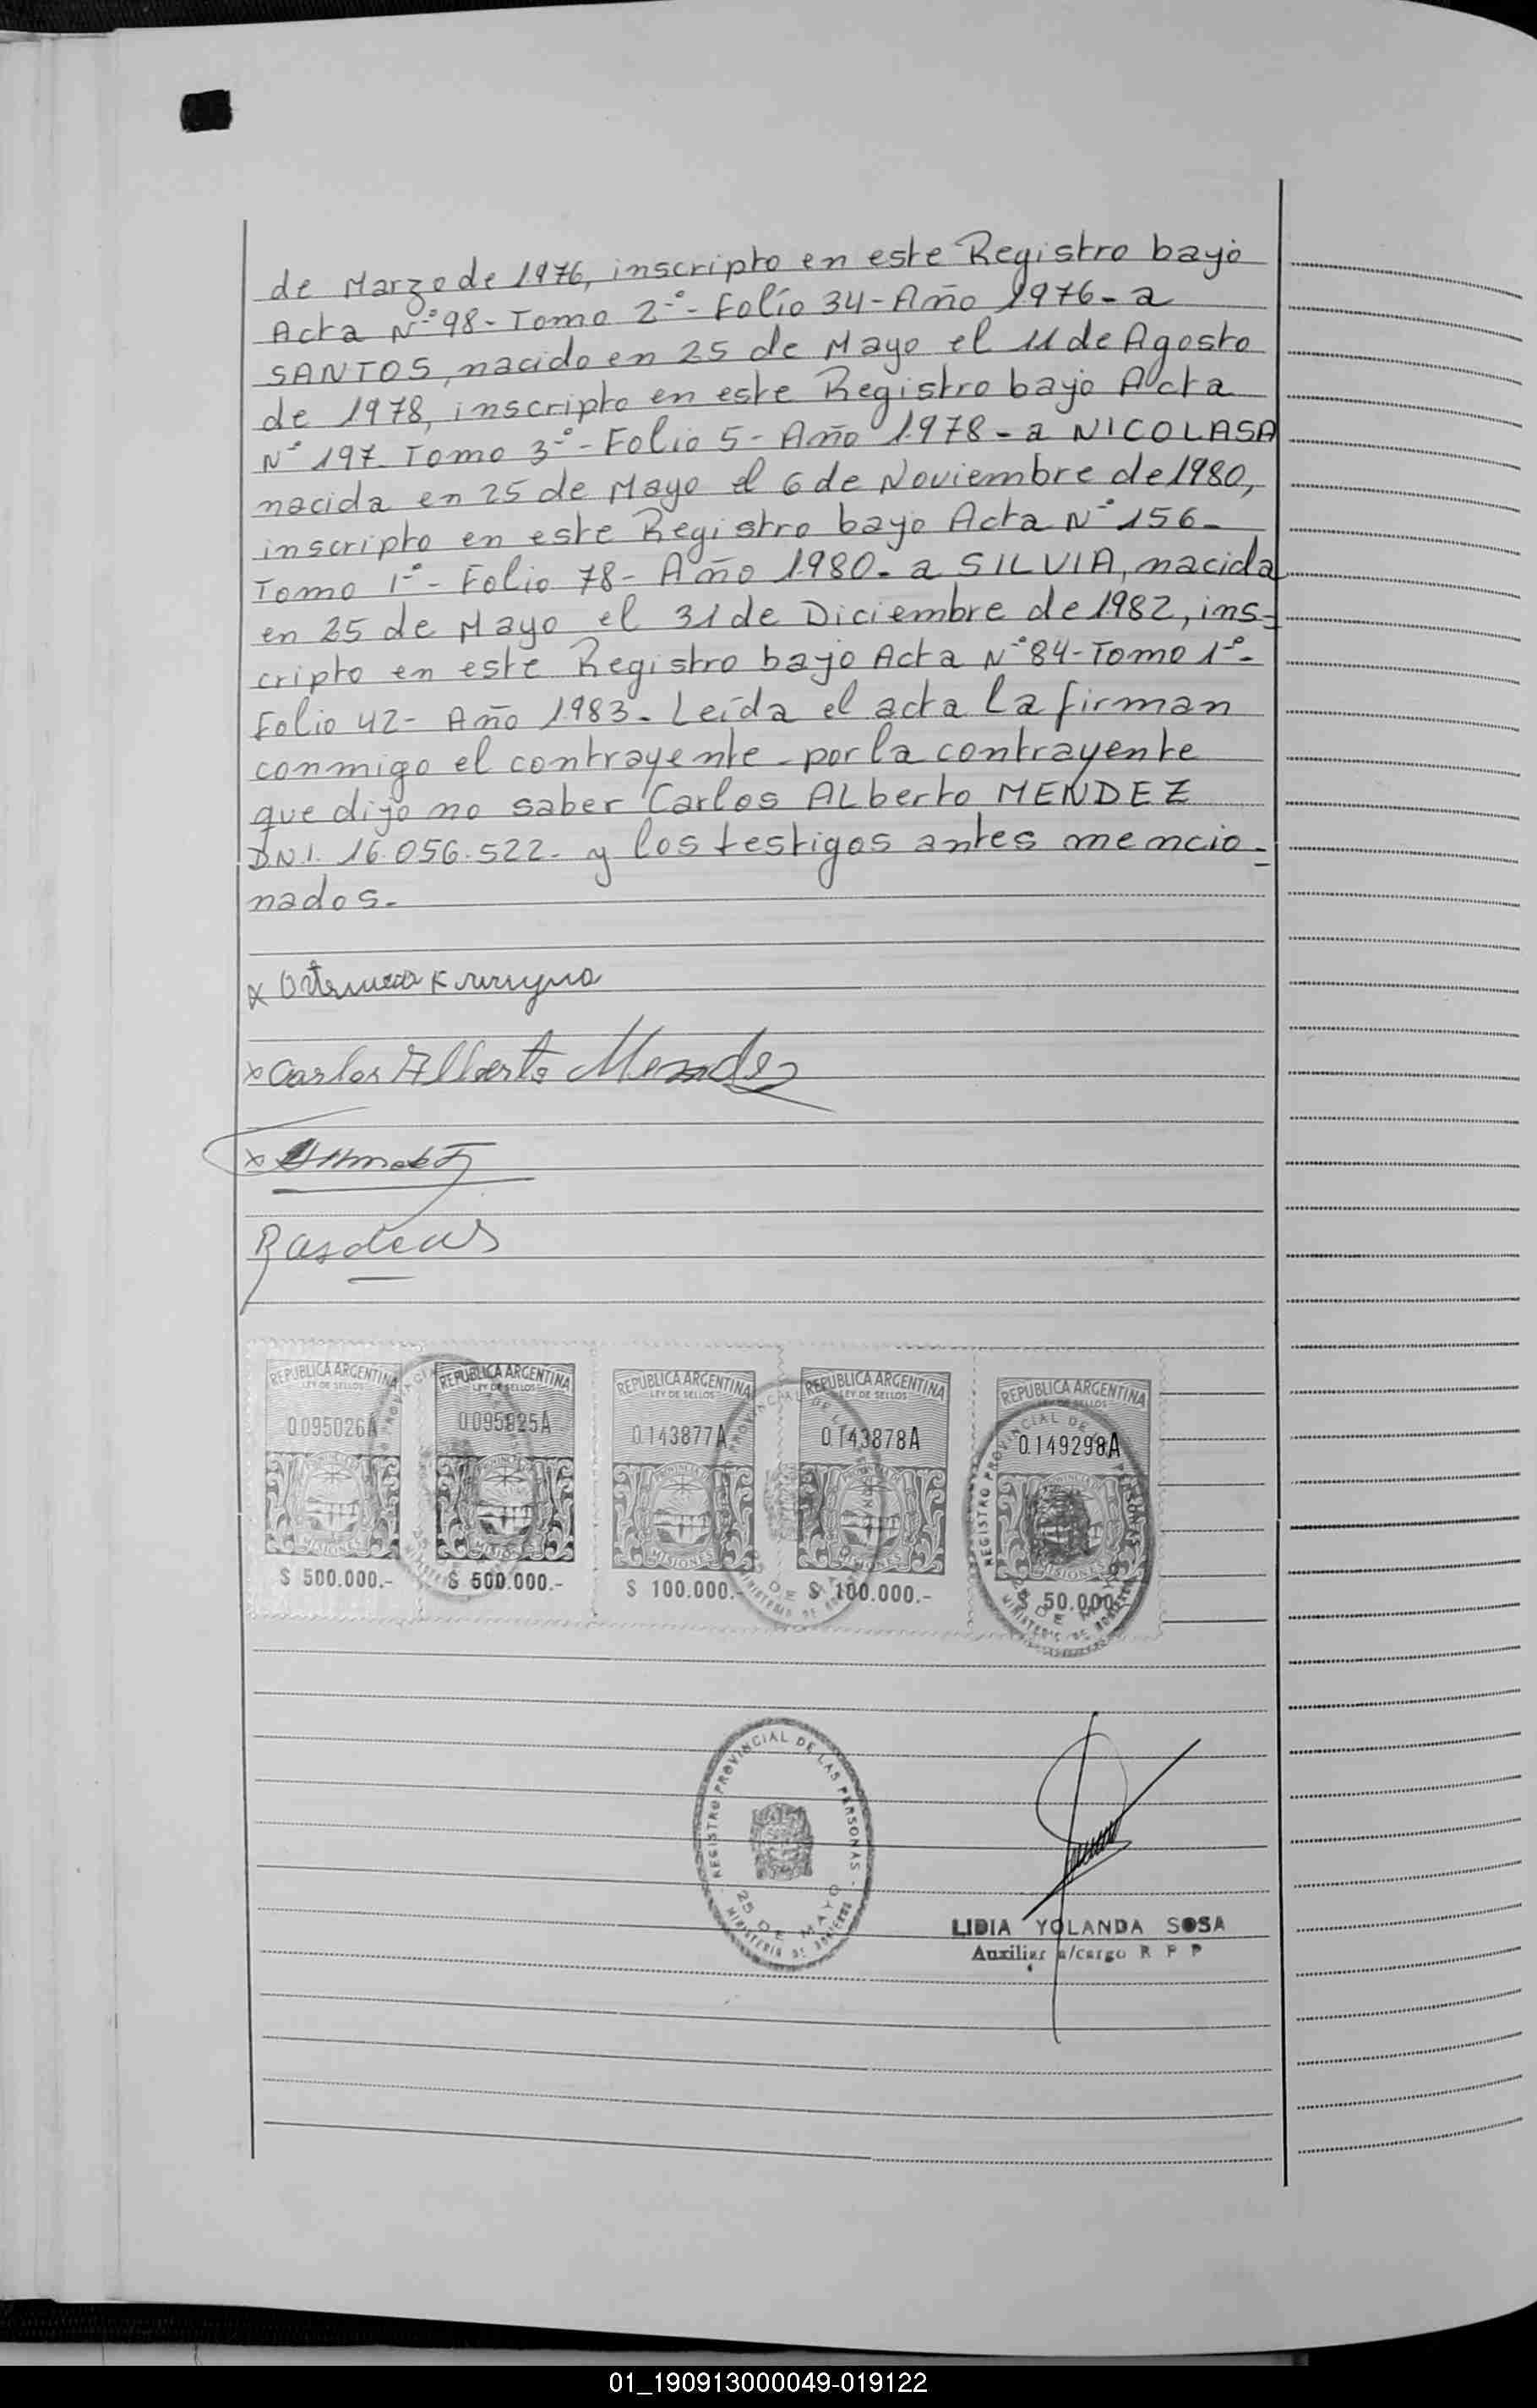 de Marzo de 1976, inscripto en este Registro bayo
Acta N° 98- Tomo 2°- Folio 34- Año 1976- a
SANTOS, nacido en 25 de Mayo el 11 de Agosto
de 1978, inscripto en este Registro bayo Acta
N° 197- Tomo 3°- Folio 5- Año 1978- a NICOLASA
nacida en 25 de Mayo el 6 de Noviembre de 1980,
inscripto en este Registro bayo Acta N° 156-
Tomo 1°- Folio 78- Año 1980- a SILVIA, nacida
en 25 de Mayo el 31 de Diciembre de 1982, ins-
cripto en este Registro bajo Acta N° 84- Tomo 1°-
Folio 42- Año 1983- Leída el acta la firman
conmigo el contrayente - por la contrayente
que dijo no saber Carlos ALberto MENDEZ
DN.I. 16.056.522- y los testigos antes mencio-
nados.-
x
x Carlos Alberto Mendez
x
REPUBLICA ARGENTINA REPUBLICA ARGENTINA REPUBLICA ARGENTINA REPUBLICA ARGENTINA REPUBLICA ARGENTINA
LEY DE SELLOS LEY DE SELLOS LEY DE SELLOS LEY DE SELLOS LEY DE SELLOS
0.095026A 0.095025A 0.143877A 0.143878A 0.149298A
MISIONES MISIONES MISIONES MISIONES MISIONES
$ 500.000.- $ 500.000.- $ 100.000.- $ 100.000.- $ 50.000
REGISTRO PROVINCIAL DE LAS PERSONAS -
25 DE MAYO
MINISTERIO DE GOBIERNO
LIDIA YOLANDA SOSA
Auxiliar a/cargo R P P
01_190913000049-019122